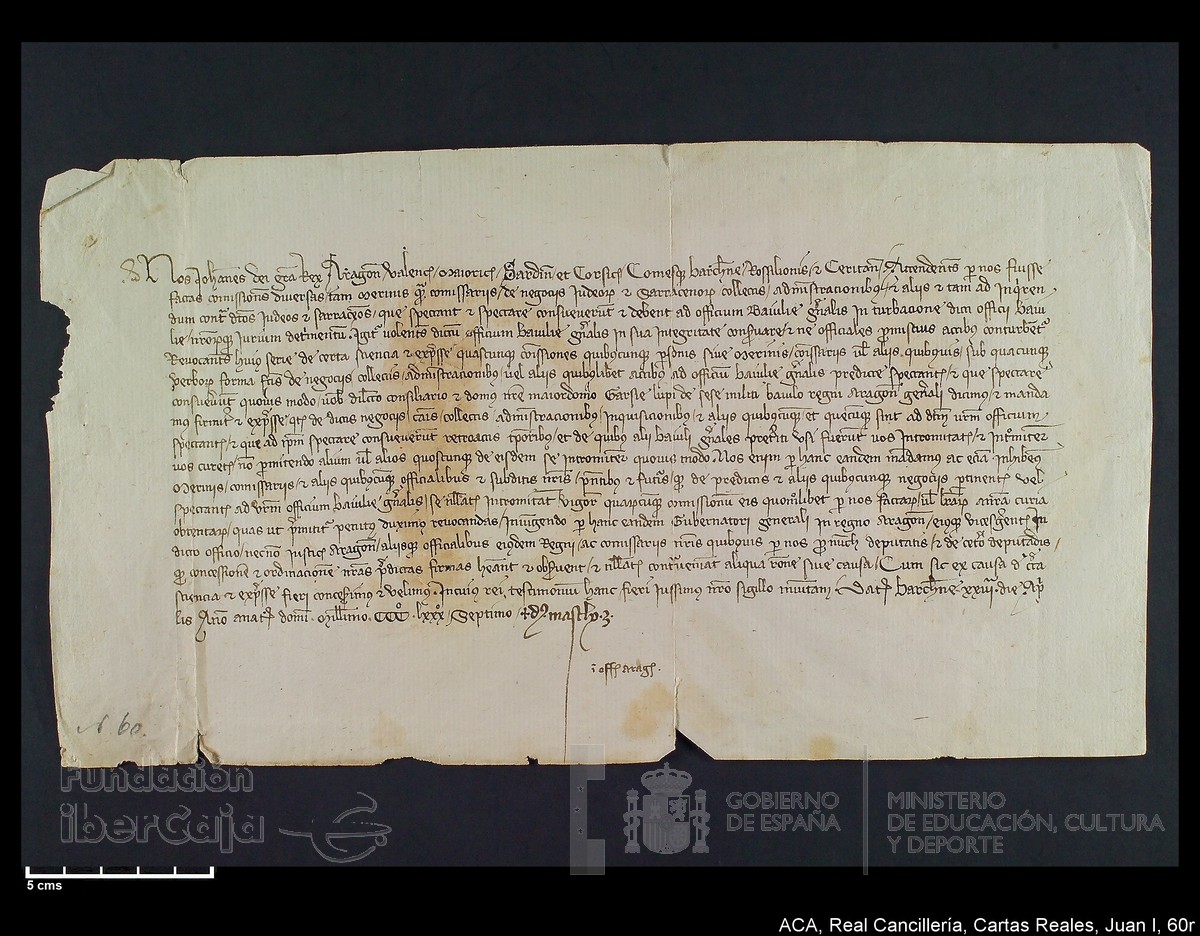 Nos Johanes dei gra Rex Aragon Valencie Maioric Sardin et Corsice Comesq Barchne Rossilionis et Ceritan Attendents per nos fuisse
factas comissions diversas tam Merinis qm comissariis de negociis Judeor et Sarracenor collectis administracionibus et aliis et tam ad inquren
dum contra dtos Judeos et sarraceos que spectant et spectare consueverut et debent ad officium Baiulie gnalis in turbacione dicti officij baiu
lie nrorumq iurium detrimentu Igit volents dictu officium baiulie gnalis in sua integritate conservare et ne officiales pmissis actibus conturbet
Revocants huius serie de certa sciencia et expsse quascunque comissiones quibuscunque psonis sive Merinis comissariis vel aliis quibusvis sub quacunque
verbor forma fcas de negociis collectis administracionibus vel aliis quibuslibet actibus ad officiu baiulie gnalis predicte spectants et que spectare
consueverut quovis modo vob dilcto consiliario et domus nre maiordomo Garsie lupi de sese militi baiulo regni Aragon genali dicimo et manda
mus firmit et expsse qts de dictis negociis cais collectis administracionibus inquisicionibus et aliis quibuscunque et quecunque sint ad dtm vrm officium
spectants et que ad ipm spectare consueverunt retroactis tporibus et de quibus alii baiuli gnales preteriti usi fuerunt vos intromitats et intmitter
vos curets no pmittendo alium vel alios quoscunque de eisdem se intromitter quovis modo Nos enim per hanc eandem mandamus ac ecia inhibemus
Merinis comissariis et aliis quibuscunque officialibus et subditis nris pntibus et futuris q de predictis et aliis quibuscunque negociis ptinents vel
spectants ad vrm officium baiulie gnalis se nllats intromitat vigor quarucunque comissionu eis quomolibet per nos factar vel literar a nra curia
obtentar quas ut pmittit penitus duximo revocandas iniungendo per hanc eandem Gubernatori generali in regno Aragon eiusque vicesgerenti in
dicto officio necno Justicie Aragon aliisque officialibus eiusdem Regni ac comissariis nris quibusvis per nos pnuc deputatis et de cetero deputadis
q concessione et ordinacione nras pdictas firmas heant et observent et nllats contveniat aliqua rone sive causa Cum sic ex causa de crta
sciencia et expsse fieri concesserimus et velimus In cuius rei testimoniu hanc fieri iussimus nro sigillo munitam Dat Barchne xxiiii die Ap
lis Ano anat domi Millimo CCC lxxx septimo
i offi arag
N. 60.
Fundación
iberCaja
GOBIERNO
DE ESPAÑA
MINISTERIO
DE EDUCACIÓN, CULTURA
Y DEPORTE
5 cms
ACA, Real Cancillería, Cartas Reales, Juan I, 60r